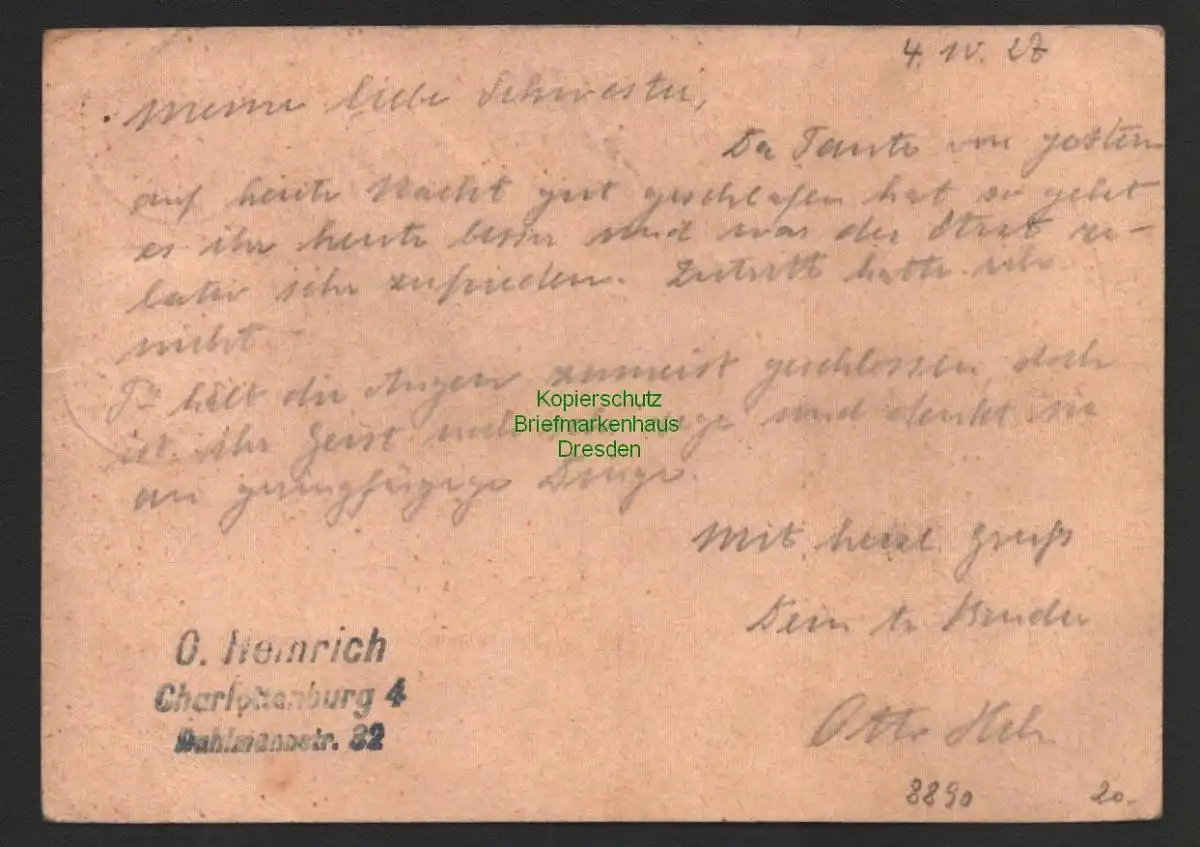 4. IV. 27
Meine liebe Schwester,
Da Tante von gestern
auf heute Nacht gut geschlafen hat so geht
es ihr heute besser und war der Arzt re-
lativ sehr zufrieden. Zutritt hatte ich
nicht.
hält die Augen zumeist geschlossen, doch
ist ihr Geist und denkt sie
an geringfügige Dinge.
Mit herzl. Gruß
Dein tr. Bruder
Otto
Kopierschutz
Briefmarkenhaus
Dresden
O. Heinrich
Charlottenburg 4
Dahlmannstr. 32
8890
20.-